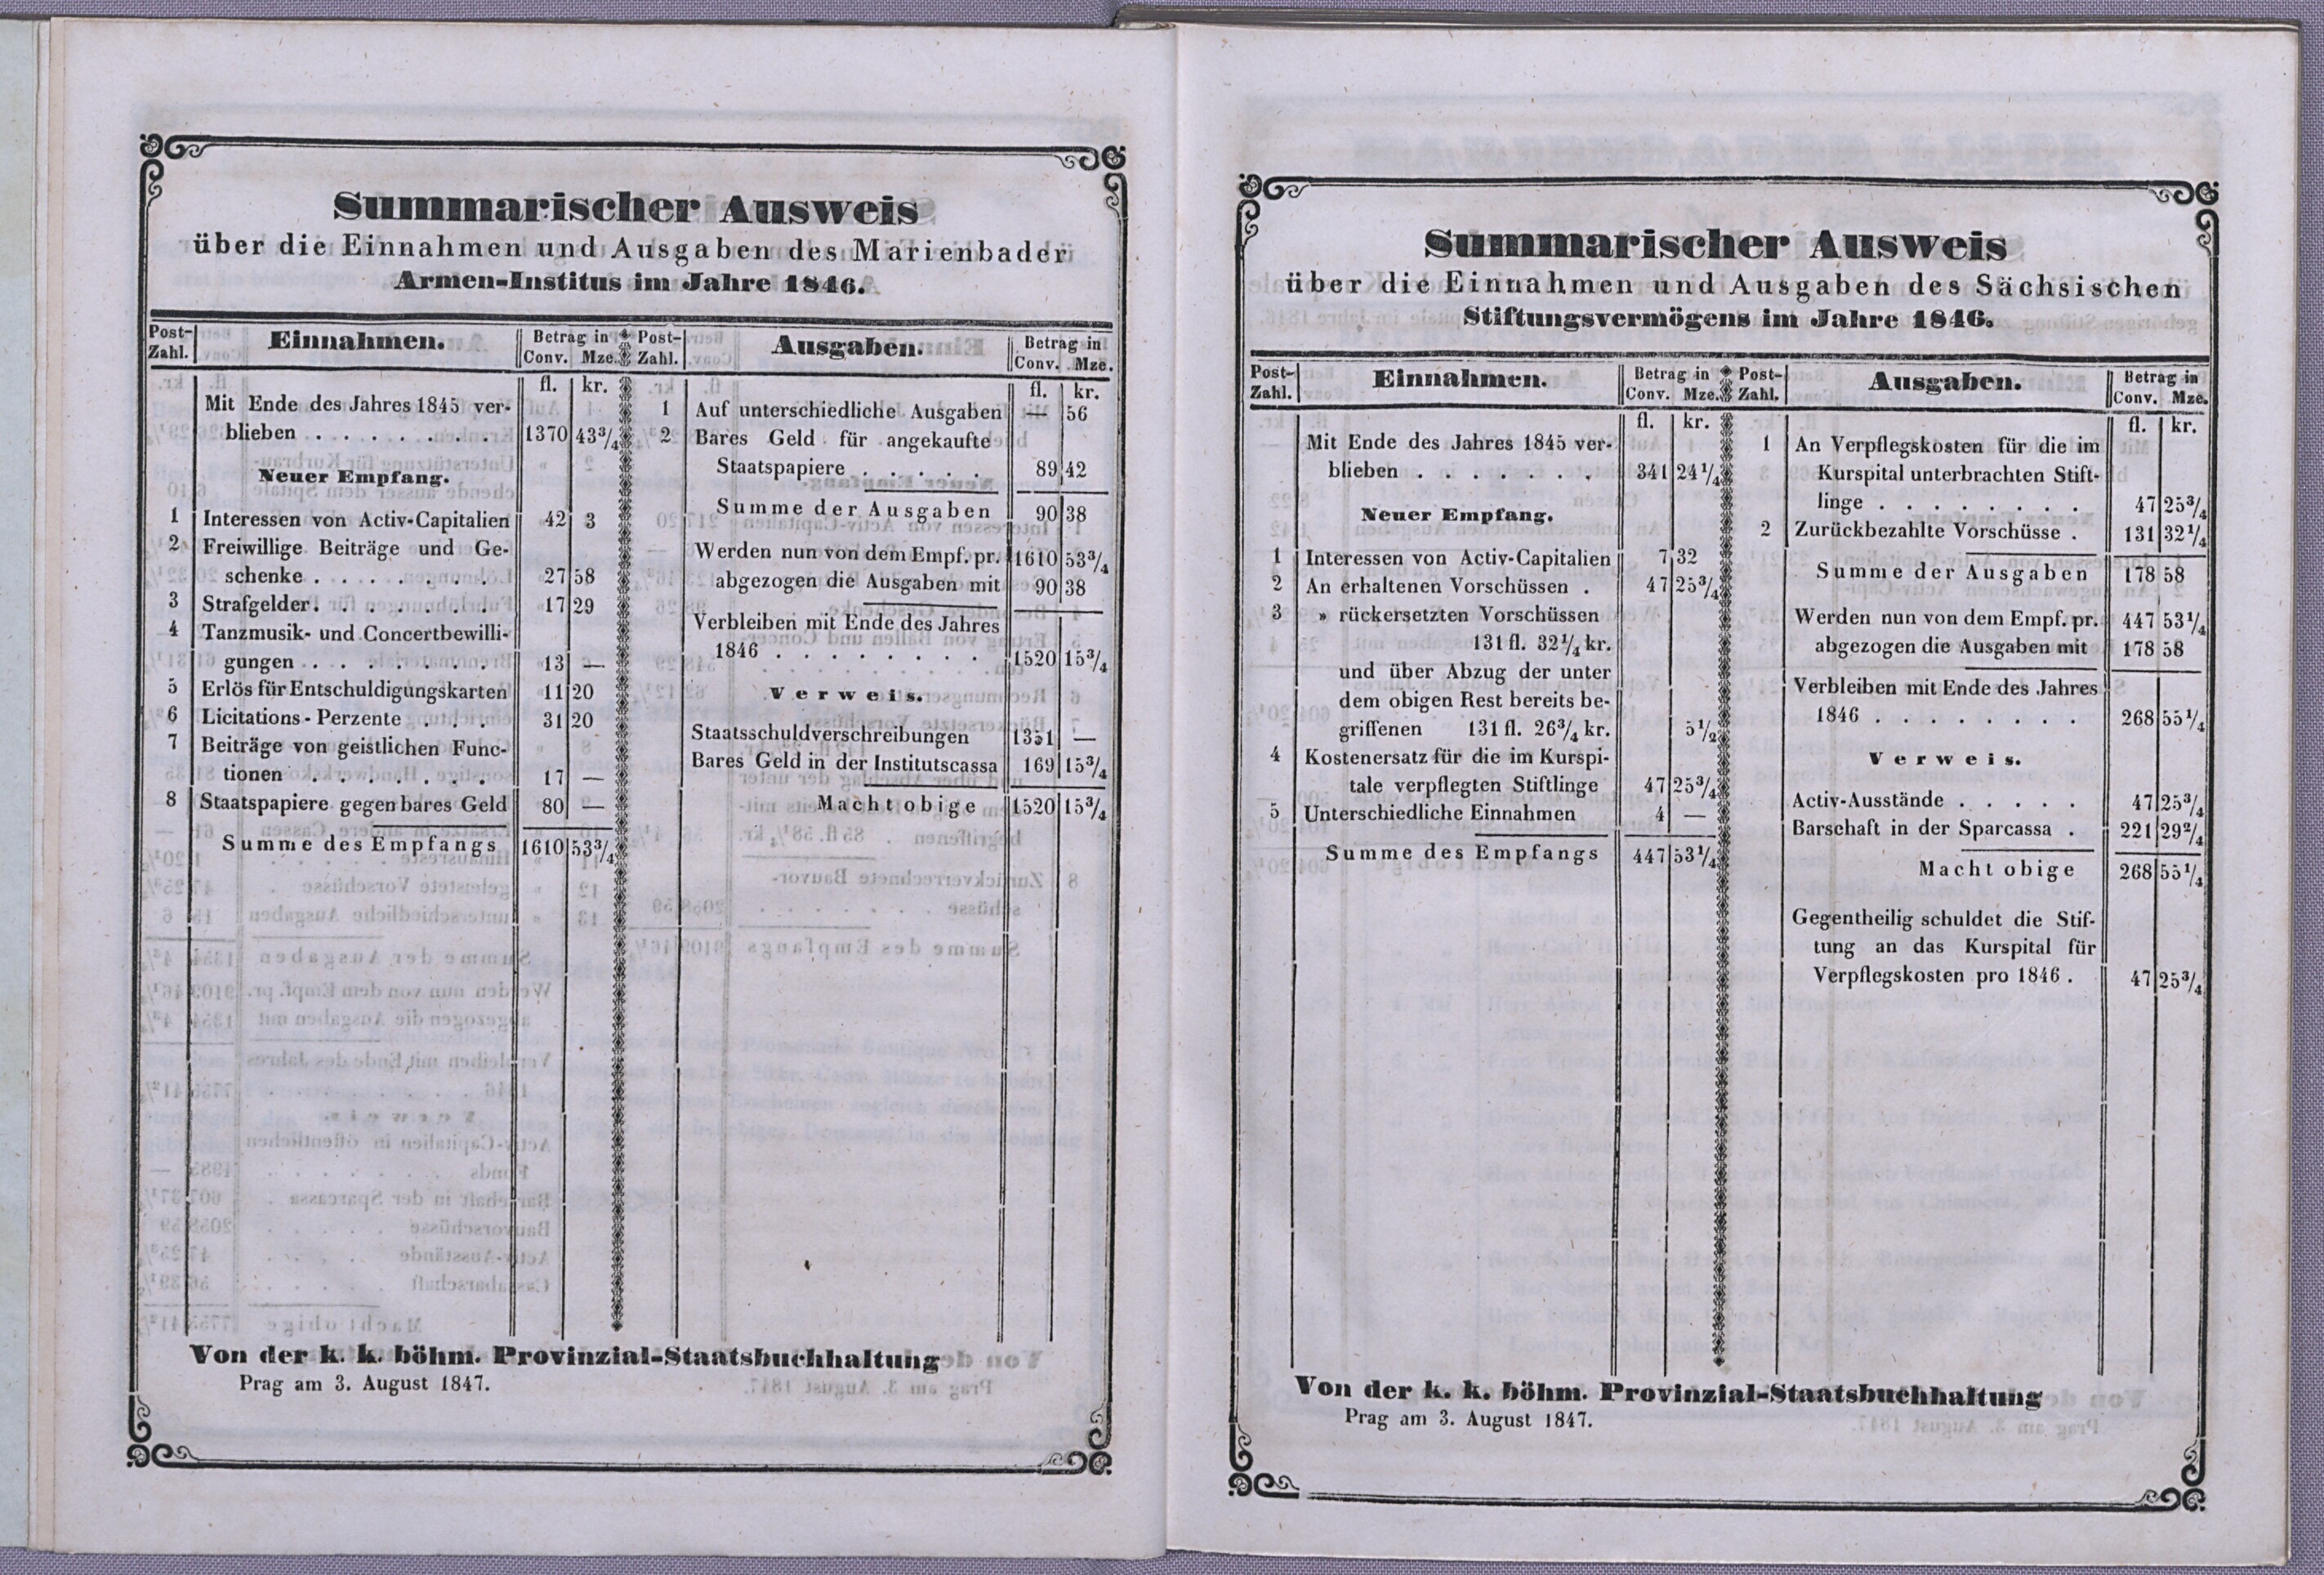 Summarischer Ausweis
über die Einnahmen und Ausgaben des Marienbader
Armen-Institus im Jahre 1846.
Post-Zahl. Einnahmen. Betrag in Conv. Mze.
fl. kr.
Mit Ende des Jahres 1845 ver-
blieben . . . . . . . 1370 43 3/4
Neuer Empfang.
1 Interessen von Activ-Capitalien 42 3
2 Freiwillige Beiträge und Ge-
schenke . . . . . . . 27 58
3 Strafgelder . . . . . . . 17 29
4 Tanzmusik- und Concertbewilli-
gungen . . . . . . . 13 —
5 Erlös für Entschuldigungskarten 11 20
6 Licitations-Perzente . . . 31 20
7 Beiträge von geistlichen Func-
tionen . . . . . . . 17 —
8 Staatspapiere gegen bares Geld 80 —
Summe des Empfangs 1610 53 3/4
Post-Zahl. Ausgaben. Betrag in Conv. Mze.
fl. kr.
1 Auf unterschiedliche Ausgaben — 56
2 Bares Geld für angekaufte
Staatspapiere . . . . . . 89 42
Summe der Ausgaben 90 38
Werden nun von dem Empf. pr. 1610 53 3/4
abgezogen die Ausgaben mit 90 38
Verbleiben mit Ende des Jahres
1846 . . . . . . . . 1520 15 3/4
Verweis.
Staatsschuldverschreibungen 1351 —
Bares Geld in der Institutscassa 169 15 3/4
Macht obige 1520 15 3/4
Von der k. k. böhm. Provinzial-Staatsbuchhaltung
Prag am 3. August 1847.
Summarischer Ausweis
über die Einnahmen und Ausgaben des Sächsischen
Stiftungsvermögens im Jahre 1846.
Post-Zahl. Einnahmen. Betrag in Conv. Mze.
fl. kr.
Mit Ende des Jahres 1845 ver-
blieben . . . . . . . 341 24 1/4
Neuer Empfang.
1 Interessen von Activ-Capitalien 7 32
2 An erhaltenen Vorschüssen . 47 25 3/4
3 » rückersetzten Vorschüssen
131 fl. 32 1/4 kr.
und über Abzug der unter
dem obigen Rest bereits be-
griffenen 131 fl. 26 3/4 kr. 5 1/2
4 Kostenersatz für die im Kurspi-
tale verpflegten Stiftlinge 47 25 3/4
5 Unterschiedliche Einnahmen 4 —
Summe des Empfangs 447 53 1/4
Post-Zahl. Ausgaben. Betrag in Conv. Mze.
fl. kr.
1 An Verpflegskosten für die im
Kurspital unterbrachten Stift-
linge . . . . . . . . 47 25 3/4
2 Zurückbezahlte Vorschüsse . 131 32 1/4
Summe der Ausgaben 178 58
Werden nun von dem Empf. pr. 447 53 1/4
abgezogen die Ausgaben mit 178 58
Verbleiben mit Ende des Jahres
1846 . . . . . . . . 268 55 1/4
Verweis.
Activ-Ausstände . . . . . 47 25 3/4
Barschaft in der Sparcassa . 221 29 2/4
Macht obige 268 55 1/4
Gegentheilig schuldet die Stif-
tung an das Kurspital für
Verpflegskosten pro 1846 . 47 25 3/4
Von der k. k. böhm. Provinzial-Staatsbuchhaltung
Prag am 3. August 1847.